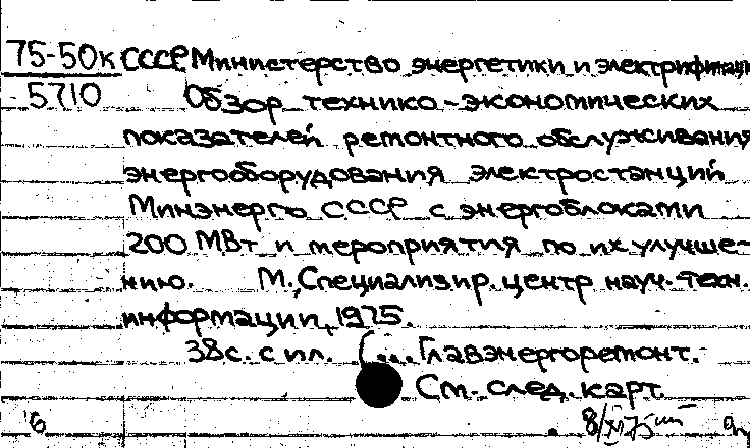 75-50к СССР Министерство энергетики и электрификации
5710 Обзор технико-экономических
показателей ремонтного обслуживания
энергооборудования электростанций
Минэнерго СССР с энергоблоками
200 МВт и мероприятия по их улучше-
нию. М., Специализир. центр науч.-техн.
информации, 1975.
38 с. с ил. (... Главэнергоремонт.
См. след. карт.
6 8/XI75